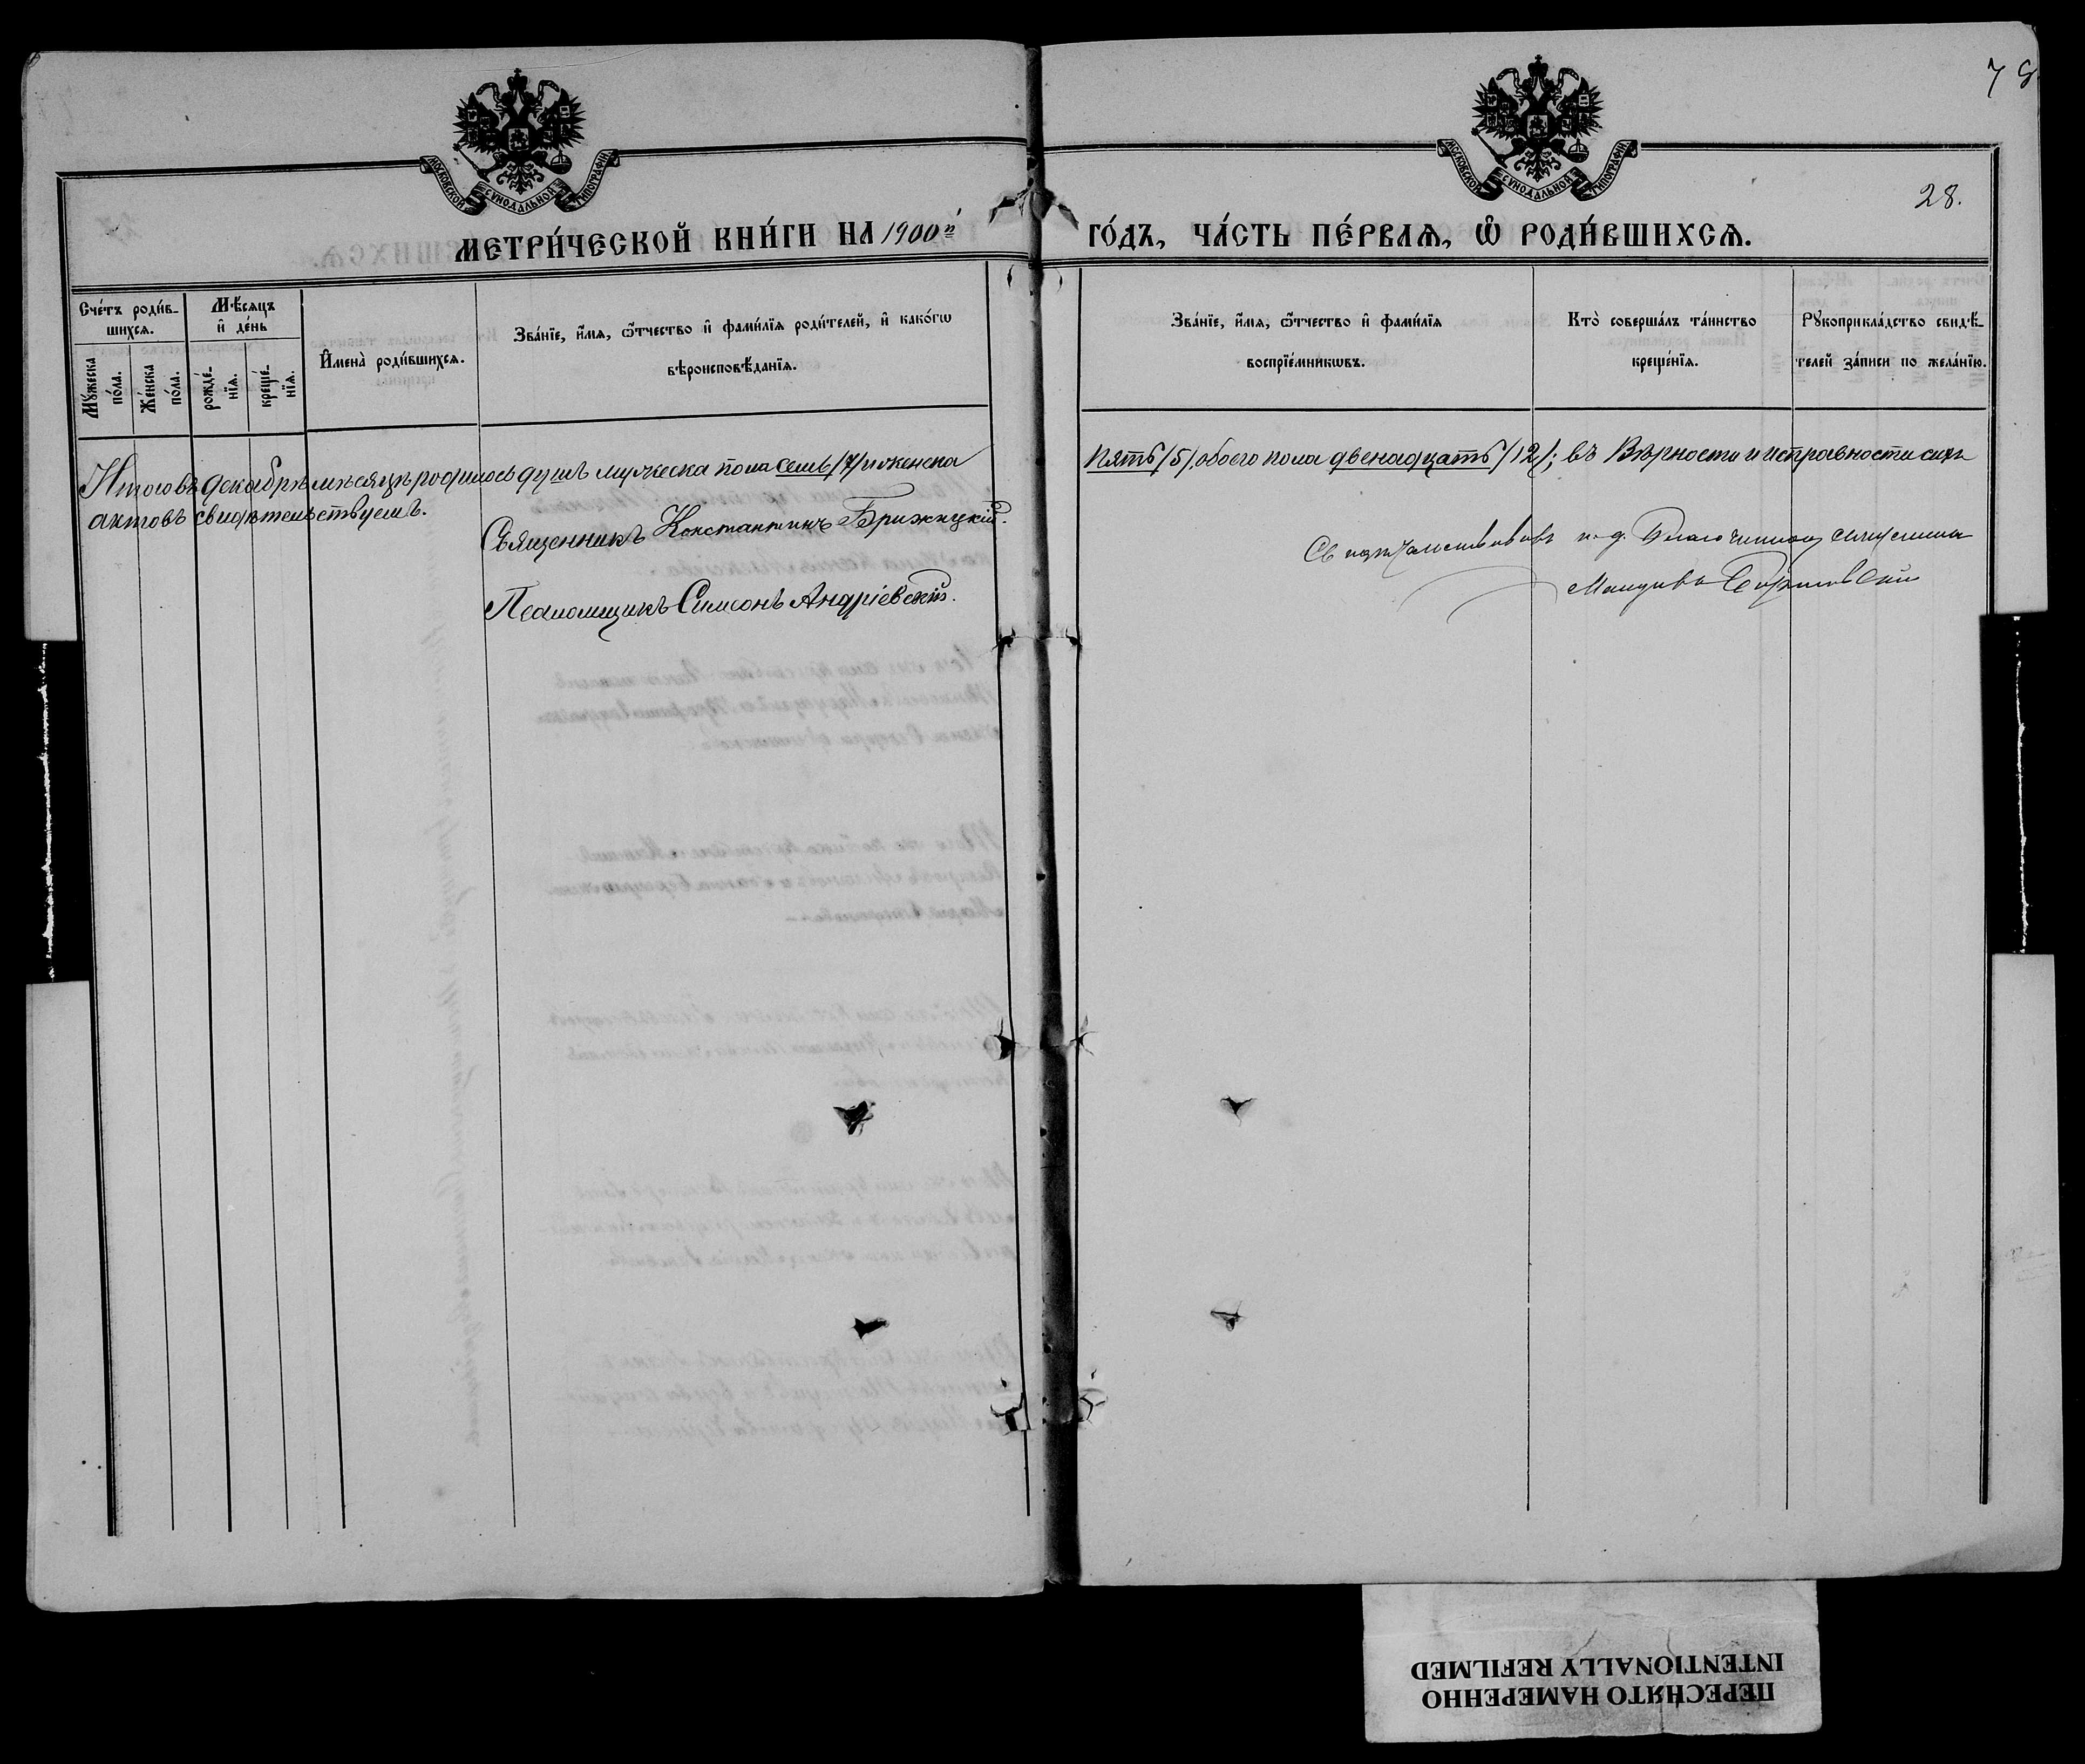 78
МОСКОВСКОЙ СѴНОДАЛЬНОЙ ТИПОГРАФІИ
МОСКОВСКОЙ СѴНОДАЛЬНОЙ ТИПОГРАФІИ
28.
МЕТРИ́ЧЕСКОЙ КНИ́ГИ НА 1900й ГО́ДЪ, ЧА́СТЬ ПЕ́РВАѦ, Ѡ҆ РОДИ́ВШИХСѦ.
Сче́тъ роди́в-
шихсѧ.
Мꙋ́жеска
по́ла.
Же́нска
по́ла.
Мѣ́сѧцъ
и҆ де́нь
рожде́-
нїѧ.
креще́-
нїѧ.
И҆мена̀ роди́вшихсѧ.
Зва́нїе, и҆́мѧ, ѻ҆́тчество и҆ фами́лїѧ роди́телей, и҆ како́гѡ
вѣроисповѣ́данїѧ.
Зва́нїе, и҆́мѧ, ѻ҆́тчество и҆ фами́лїѧ
воспрїе́мникѡвъ.
Кто̀ соверша́лъ та́инство
креще́нїѧ.
Рꙋкоприкла́дство свидѣ́-
телей за́писи по жела́нїю.
Итого въ Декабрѣ мѣсяцѣ родилось душъ мужеска пола семь /7/ и женска пять /5/, обоего пола двенадцать /12/; въ Вѣрности и исправности сихъ
актовъ свидѣтельствуемъ.
Священникъ Константинъ Брижицкій.
Псаломщикъ Симеонъ Андріевскій.
и. д. Благочиннаго
ПЕРЕСНЯТО НАМЕРЕННО
INTENTIONALLY REFILMED